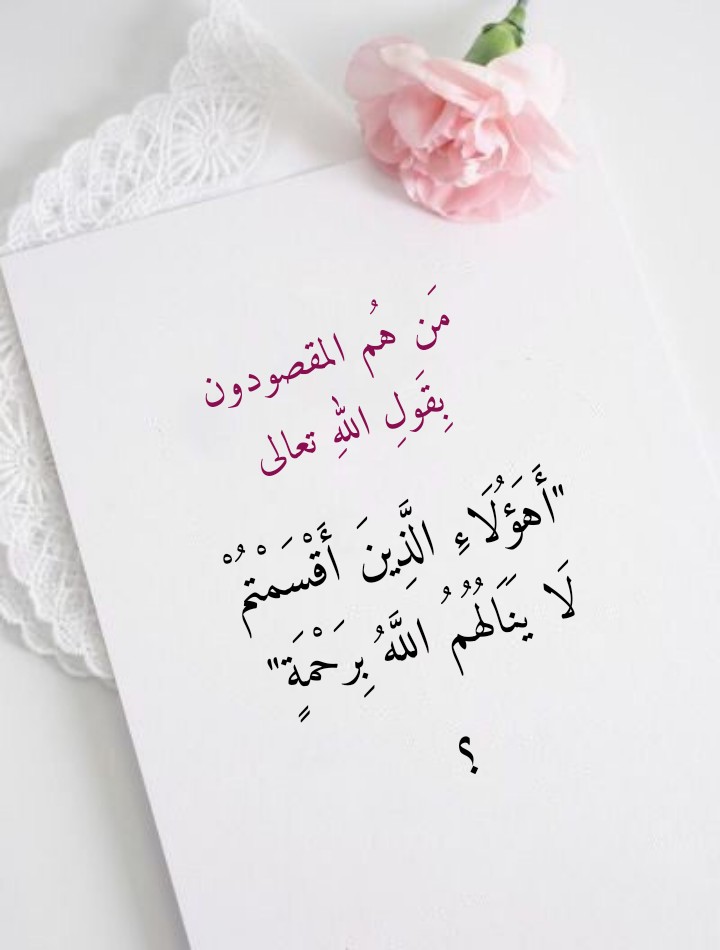 مَن هُم المقصودون
بِقَولِ اللهِ تعالى
"أَهَؤُلَاءِ الَّذِينَ أَقْسَمْتُمْ
لَا يَنَالُهُمُ اللَّهُ بِرَحْمَةٍ"
؟